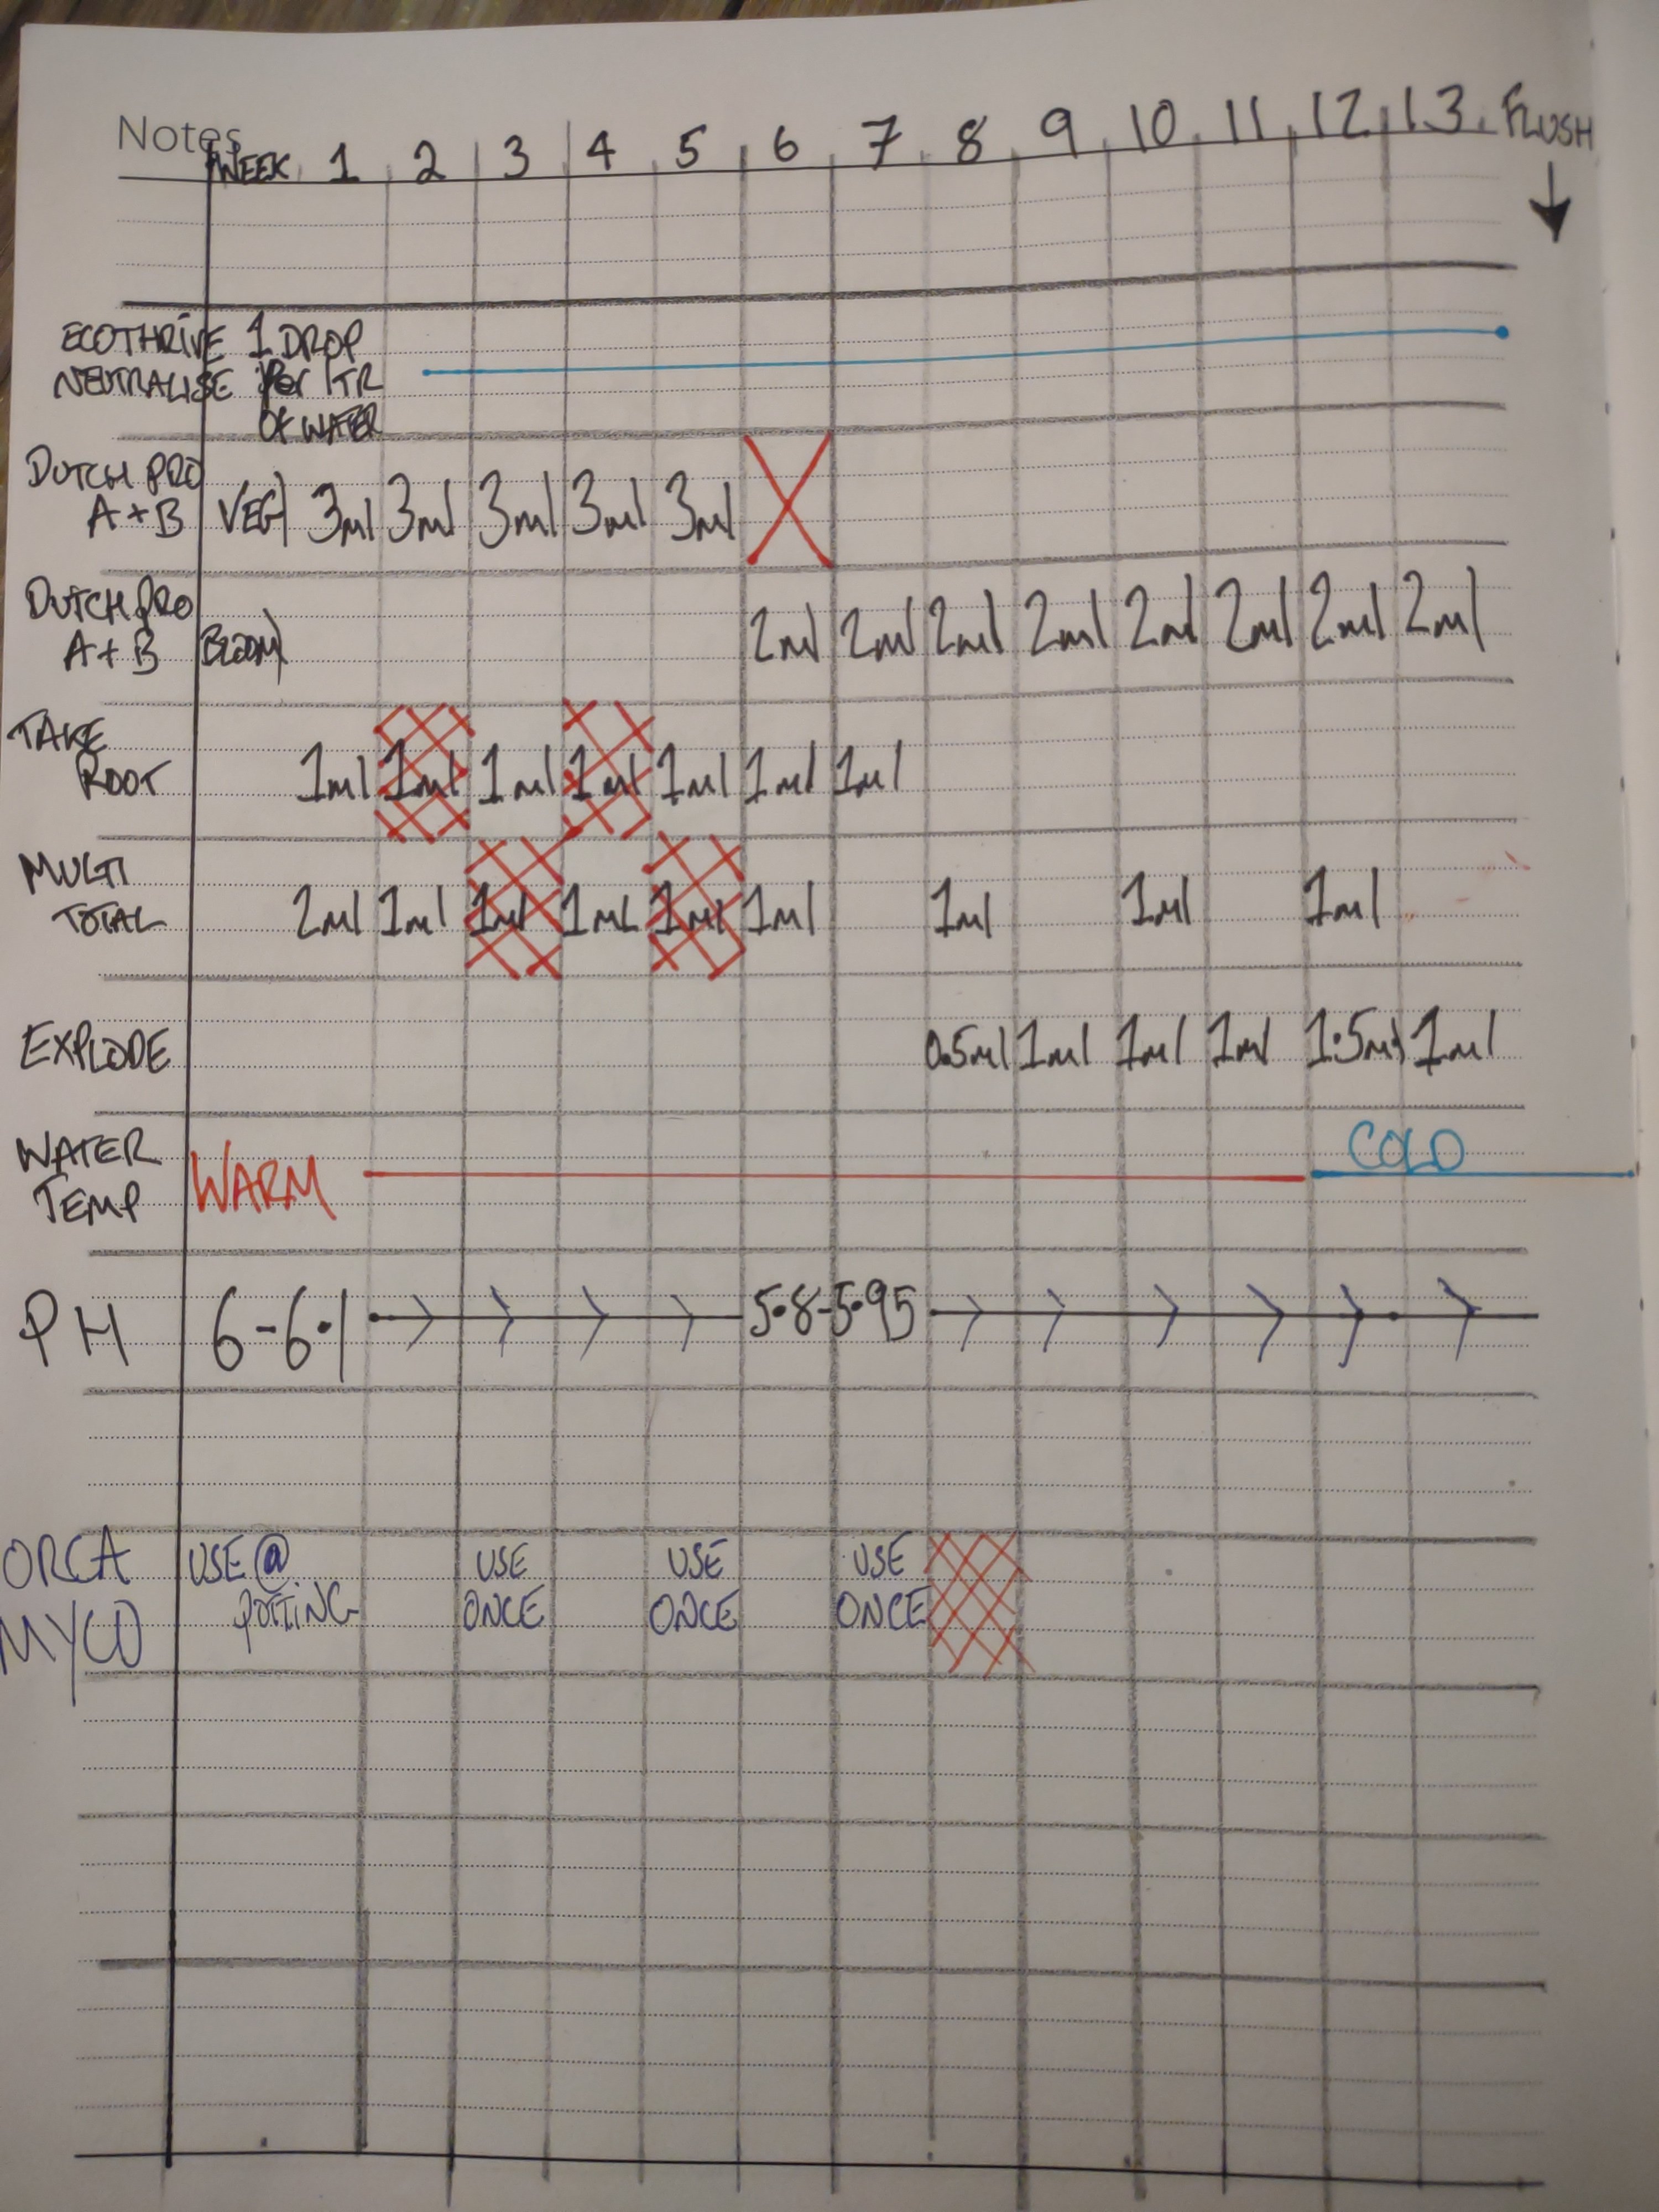 Notes
WEEK 1 2 3 4 5 6 7 8 9 10 11 12 13 FLUSH
ECOTHRIVE 1 DROP
NEUTRALISE Per LTR
OF WATER
DUTCH PRO
A+B VEG 3ml 3ml 3ml 3ml 3ml
DUTCH PRO
A+B BLOOM 2ml 2ml 2ml 2ml 2ml 2ml 2ml 2ml
TAKE
ROOT 1ml 1ml 1ml 1ml 1ml 1ml 1ml
MULTI
TOTAL 2ml 1ml 1ml 1ml 1ml 1ml 1ml 1ml 1ml
EXPLODE 0.5ml 1ml 1ml 1ml 1.5ml 1ml
WATER
TEMP WARM COLD
PH 6-6.1 5.8-5.95
ORCA USE @ USE USE USE
MYCO POTTING ONCE ONCE ONCE